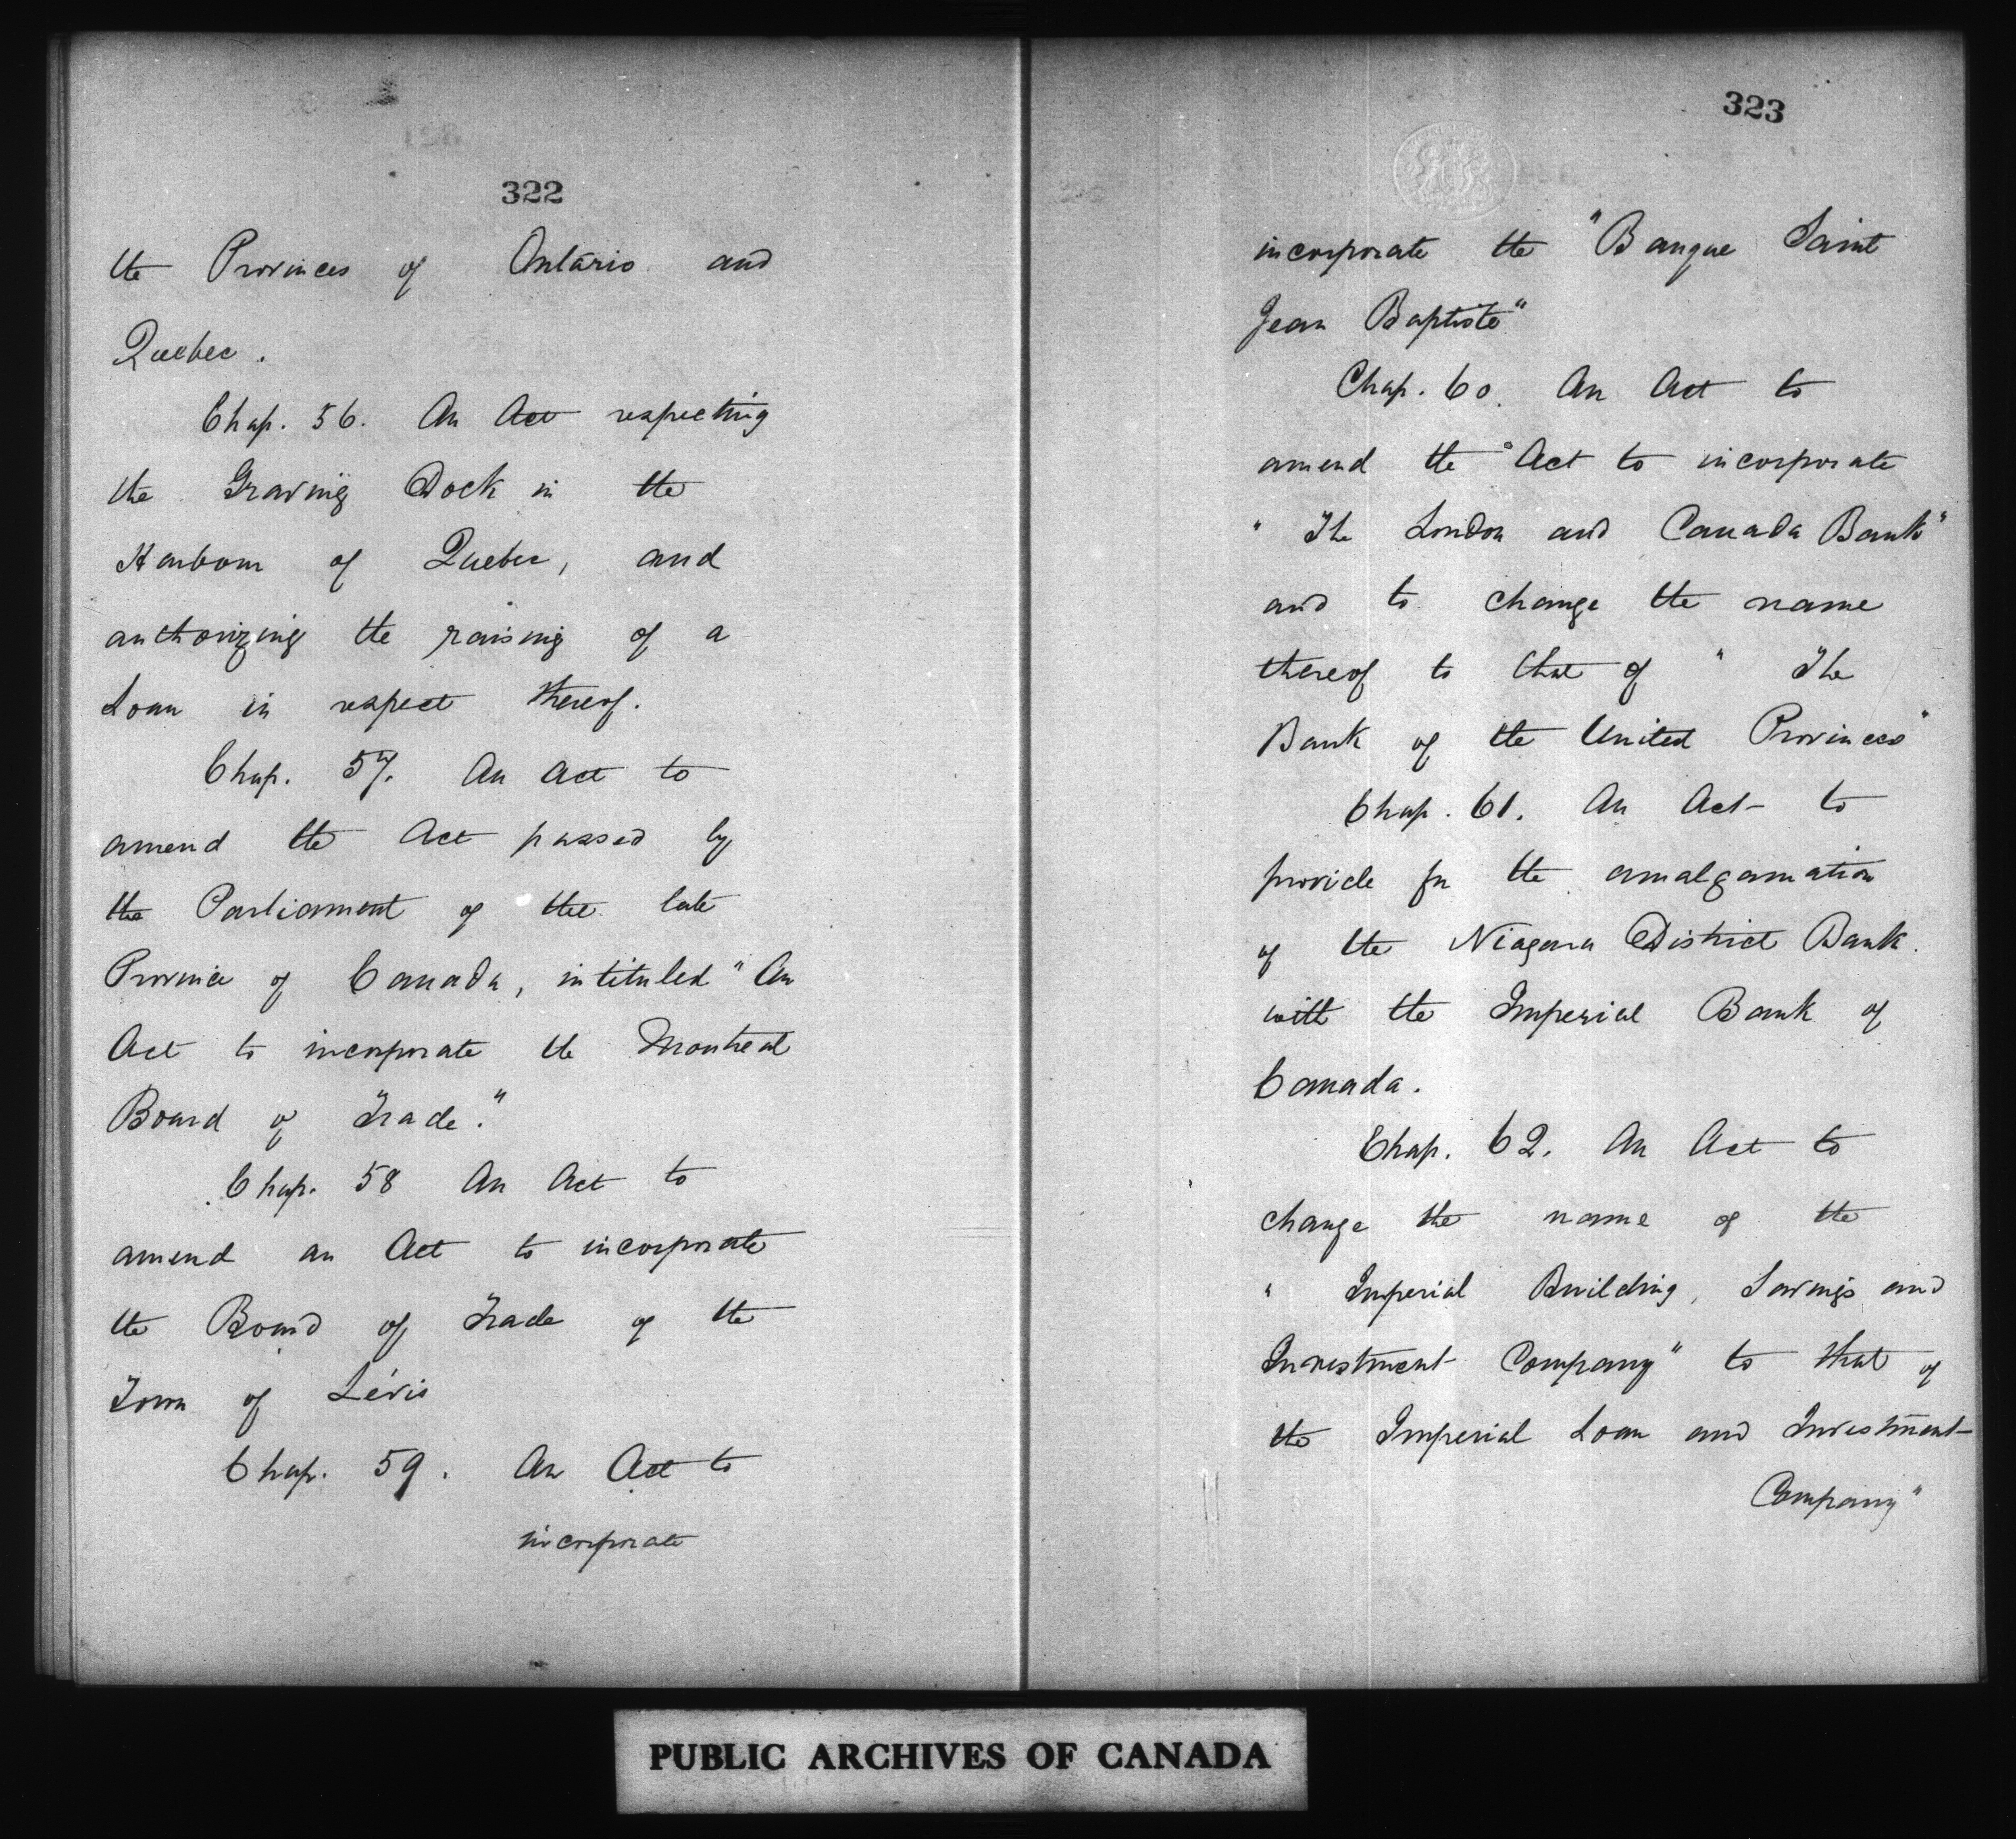 322
the Provinces of Ontario and
Quebec.
Chap. 56. An Act respecting
the Graving Dock in the
Harbour of Quebec, and
authorizing the raising of a
Loan in respect thereof.
Chap. 57. An Act to
amend the Act passed by
the Parliament of the late
Province of Canada, intituled "An
Act to incorporate the Montreal
Board of Trade."
Chap. 58 An Act to
amend an Act to incorporate
the Board of Trade of the
Town of Lévis
Chap. 59. An Act to
incorporate
323
incorporate the "Banque Saint
Jean Baptiste"
Chap. 60. An Act to
amend the "Act to incorporate
"The London and Canada Bank"
and to change the name
thereof to that of "The
Bank of the United Provinces"
Chap. 61. An Act to
provide for the amalgamation
of the Niagara District Bank
with the Imperial Bank of
Canada.
Chap. 62. An Act to
change the name of the
"Imperial Building, Savings and
Investment Company" to that of
the Imperial Loan and Investment
Company"
PUBLIC ARCHIVES OF CANADA